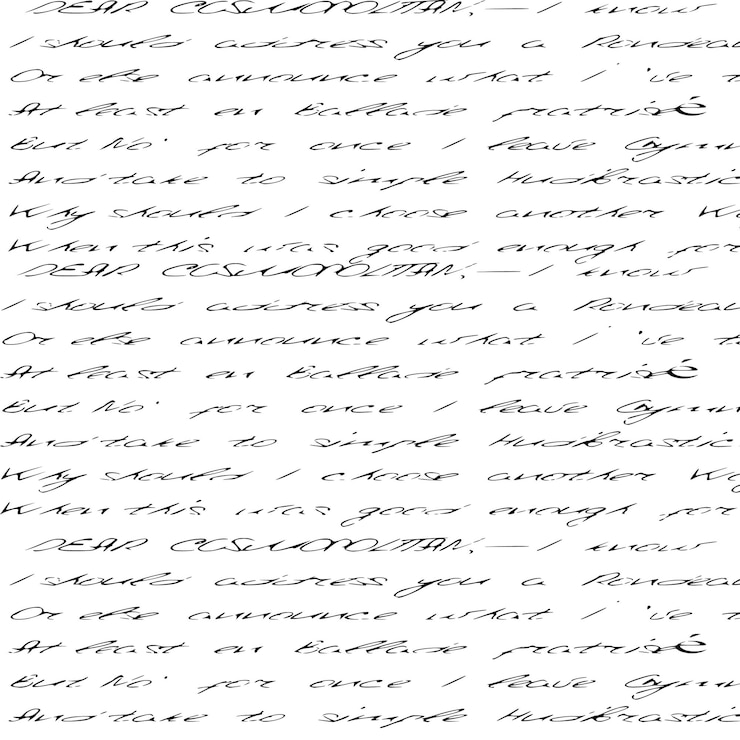 DEAR COSMOPOLITAN,—I know
I should address you a Rondeau
Or else announce what I 've t
At least en Ballade fratrisé
But No: for once I leave Gymn
And take to simple Hudibrastic
Why should I choose another W
When this was good enough for
DEAR COSMOPOLITAN,—I know
I should address you a Rondeau
Or else announce what I 've t
At least en Ballade fratrisé
But No: for once I leave Gymn
And take to simple Hudibrastic
Why should I choose another W
When this was good enough for
DEAR COSMOPOLITAN,—I know
I should address you a Rondeau
Or else announce what I 've t
At least en Ballade fratrisé
But No: for once I leave Gymn
And take to simple Hudibrastic